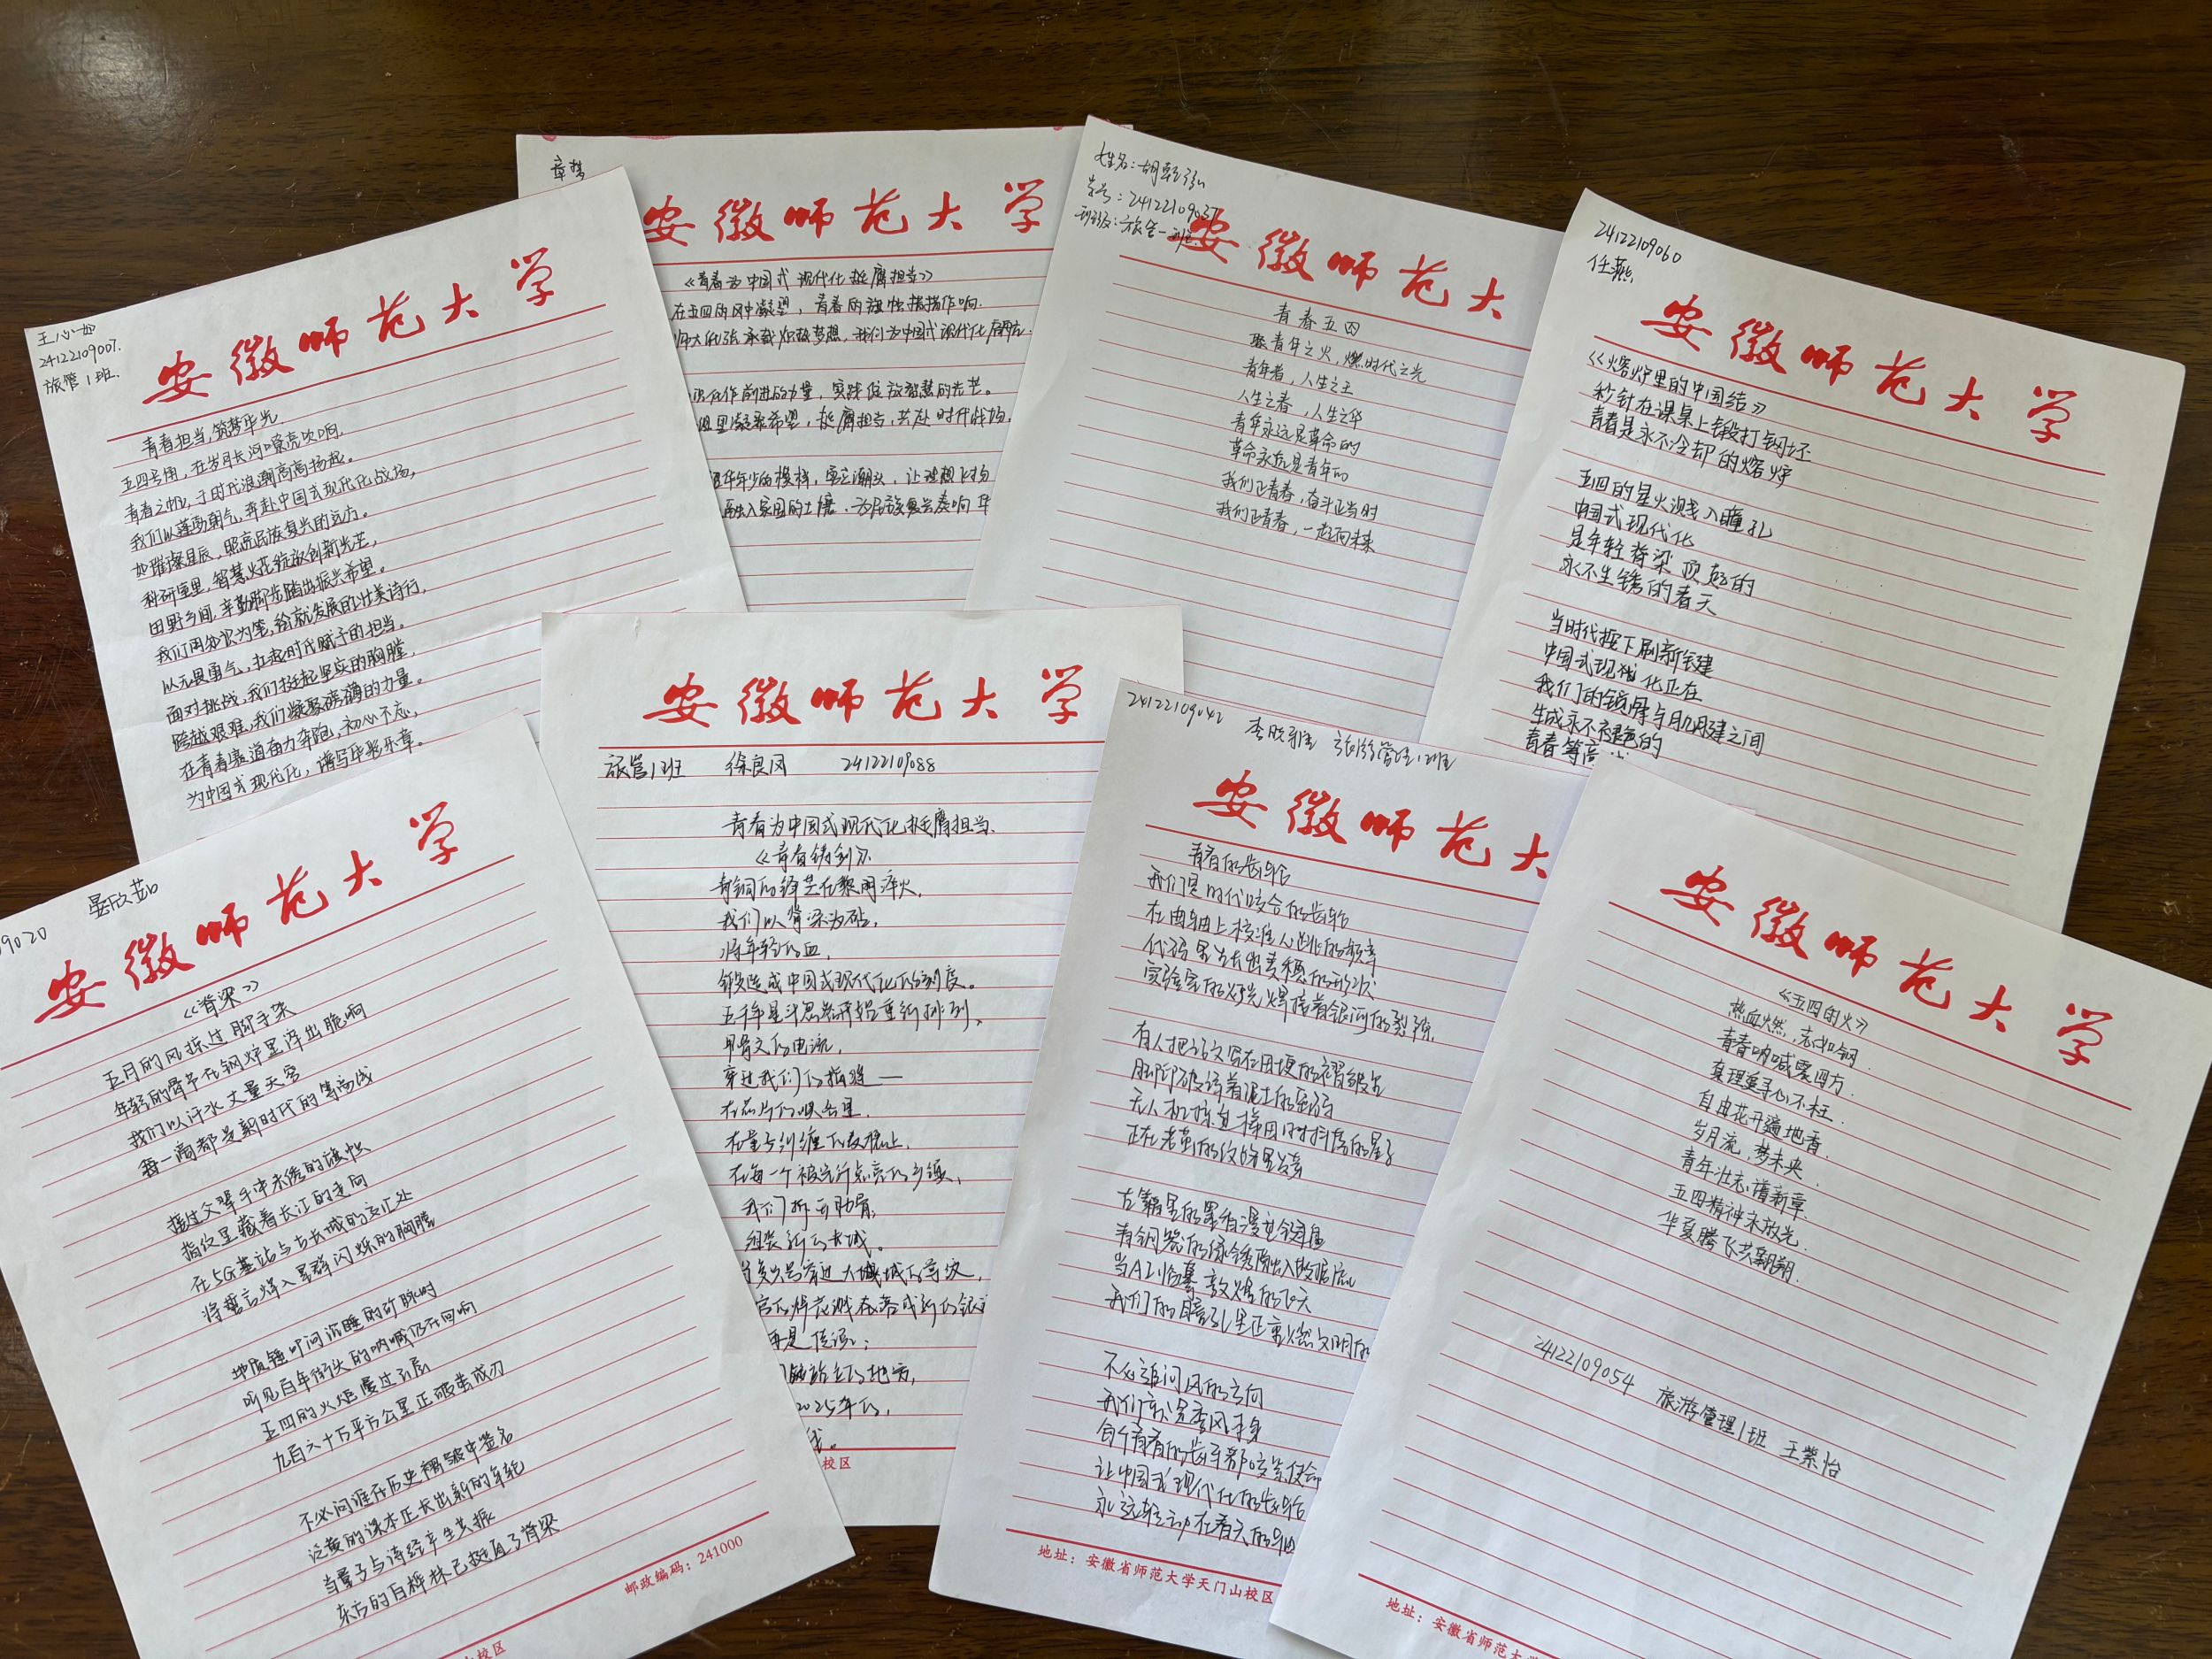 王心如
24122109007.
旅管1班.
安徽师范大学
青春担当,筑梦华光
五四号角,在岁月长河嘹亮吹响,
青春之帆,于时代浪潮高高扬起。
我们以蓬勃朝气,奔赴中国式现代化战场,
如璀璨星辰,照亮民族复兴的远方。
科研室里,智慧火花绽放创新光芒,
田野乡间,辛勤脚步踏出振兴希望。
我们用知识为笔,绘就发展的壮美诗行,
以无畏勇气,扛起时代赋予的担当。
面对挑战,我们挺起坚实的胸膛,
跨越艰难,我们凝聚磅礴的力量。
在青春赛道奋力奔跑,初心不忘,
为中国式现代化,谱写华彩乐章。
章梦
安徽师范大学
《青春为中国式现代化挺膺担当》
在五四的风中凝望,青春的旋律
承载炽热梦想,我们为中国式现代化
作前进的力量,实践绽放智慧的光芒。
里凝聚希望,挺膺担当,共赴时代战场.
年少的模样,
融入家国的土壤,为民族复兴奏响华
姓名:胡
学号:24122109037
班级:旅管一班
安徽师范大
青春五四
青年之火,燃时代之光
青年者,人生之王
人生之春,人生之华
青年永远是革命的
革命永远是青年的
我们正青春,奋斗正当时
我们正青春,一起向未来
24122109060
任燕
安徽师范大学
《熔炉里的中国结》
秒针在课桌上锻打钢坯
青春是永不冷却的熔炉
五四的星火溅入瞳孔
中国式现代化
是年轻脊梁顶起的
永不生锈的春天
当时代按下刷新键
中国式现代化正在
我们的鼠标与肌腱之间
生成永不褪色的
青春等高
9020
晏欣茹
安徽师范大学
《脊梁》
五月的风掠过脚手架
年轻的骨节在钢炉里淬出脆响
我们以汗水丈量天穹
每一滴都是新时代的等高线
接过父辈手中未锈的旗帜
指纹里藏着长江的走向
在5G基站与古长城的交汇处
将誓言焊入星群闪烁的胸膛
地质锤叩问沉睡的矿脉时
听见百年街头的呐喊仍在回响
五四的火炬漫过云层
九百六十万平方公里正破茧成刃
不必问谁在历史褶皱中签名
泛黄的课本正长出新的年轮
当量子与诗经产生共振
东方的白桦林已挺直了脊梁
邮政编码:241000
校区
安徽师范大学
旅管1班 徐良风 24122109088
青春为中国式现代化挺膺担当.
《青春铸剑》
青铜的锋芒在黎明淬火,
我们以脊梁为砧,
将年轻的血,
锻造成中国式现代化的刻度。
五千年星斗忽然开始重新排列,
甲骨文的电流,
穿过我们的指缝——
在芯片的峡谷里,
在量子纠缠的数据上,
在每一个被光纤点亮的乡镇,
我们拆开肋骨,
组装新的长城。
再是传说;
2025年的,
校区
24122109042 旅游管理1班
安徽师范大
青春的齿轮
我们是时代咬合的齿轮
在曲轴上校准心跳的频率
代码里生长出麦穗的形状
实验室的灯光焊接着银河的裂隙
有人把论文写在田埂的褶皱里
脚印破译着泥土的密码
无人机掠过梯田时抖落的星子
正在老茧的纹路里发芽
青铜器的绿锈融入数据流
当AI临摹敦煌的飞天
我们的瞳孔里正重燃文明的
不必追问风的方向
我们就是季风本身
每个青春的齿牙都咬紧使命
让中国式现代化的齿轮
永远转动在春天的轴
地址:安徽省师范大学天门山校区
安徽师范大学
《五四的火》
热血燃,志如钢.
青春呐喊震四方.
真理重寻心不枉.
自由花开遍地香.
岁月流,梦未央.
青年壮志谱新章.
五四精神永放光.
华夏腾飞共翱翔.
24122109054 旅游管理1班 王紫怡
地址:安徽省师范大